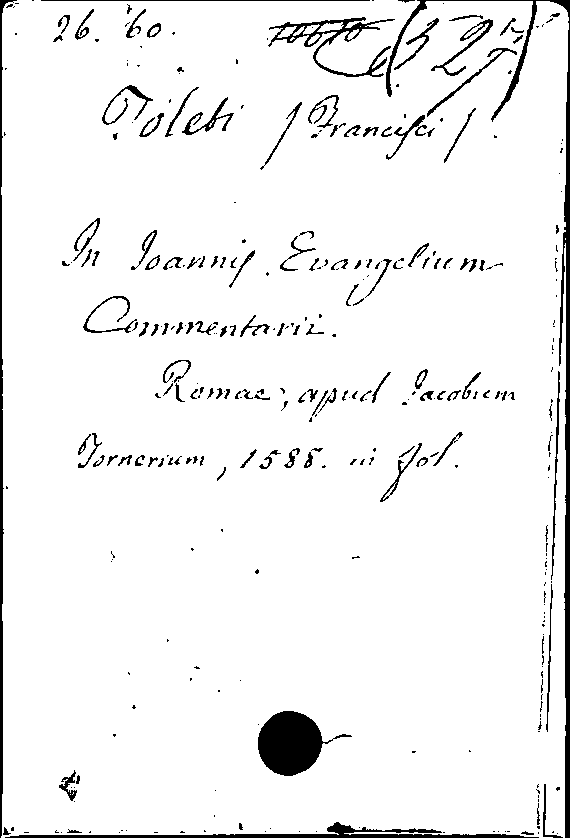 26. 60.
Toleti / Francisci /.
In Ioannis Evangelium
Commentarii.
Romae, apud Jacobum
Tornerium, 1588. in fol.